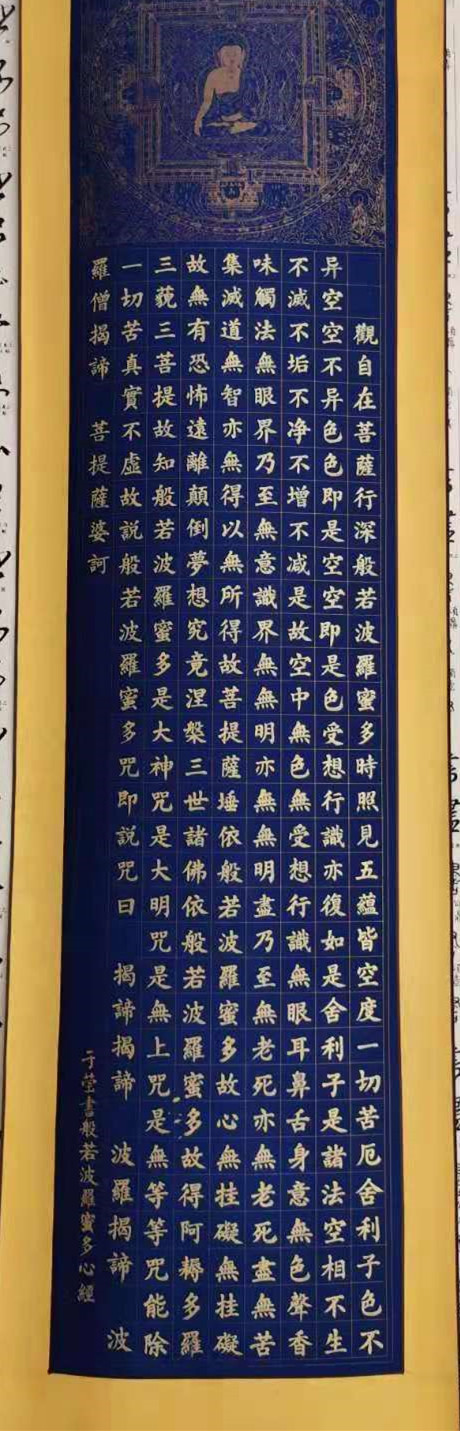 觀自在菩薩行深般若波羅蜜多時照見五蘊皆空度一切苦厄舍利子色不
异空空不异色色即是空空即是色受想行識亦復如是舍利子是諸法空相不生
不滅不垢不净不增不减是故空中無色無受想行識無眼耳鼻舌身意無色聲香
味觸法無眼界乃至無意識界無無明亦無無明盡乃至無老死亦無老死盡無苦
集滅道無智亦無得以無所得故菩提薩埵依般若波羅蜜多故心無挂礙無挂礙
故無有恐怖遠離顛倒夢想究竟涅槃三世諸佛依般若波羅蜜多故得阿耨多羅
三藐三菩提故知般若波羅蜜多是大神咒是大明咒是無上咒是無等等咒能除
一切苦真實不虛故說般若波羅蜜多咒即說咒曰 揭諦揭諦 波羅揭諦 波
羅僧揭諦 菩提薩婆訶
于莹書般若波羅蜜多心經